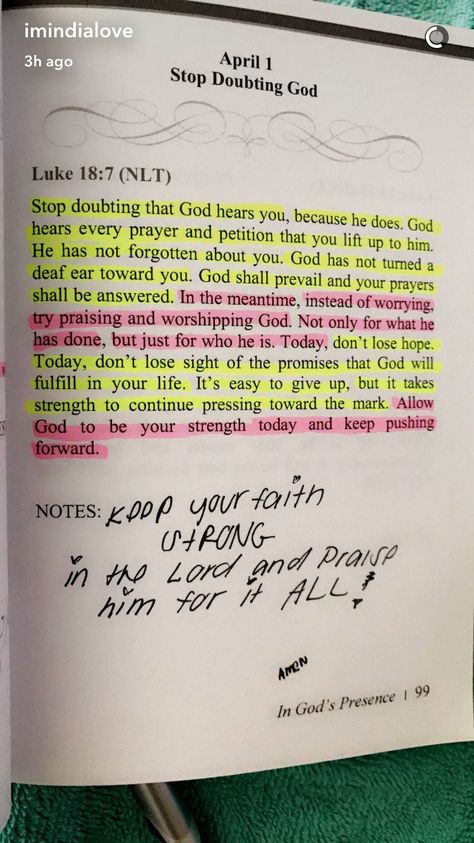 imindialove
3h ago
April 1
Stop Doubting God
Luke 18:7 (NLT)
Stop doubting that God hears you, because he does. God
hears every prayer and petition that you lift up to him.
He has not forgotten about you. God has not turned a
deaf ear toward you. God shall prevail and your prayers
shall be answered. In the meantime, instead of worrying,
try praising and worshipping God. Not only for what he
has done, but just for who he is. Today, don't lose hope.
Today, don't lose sight of the promises that God will
fulfill in your life. It's easy to give up, but it takes
strength to continue pressing toward the mark. Allow
God to be your strength today and keep pushing
forward.
NOTES: KEEP your faith
STRONG
in the Lord and Praise
him for it ALL!
AMEN
In God's Presence | 99